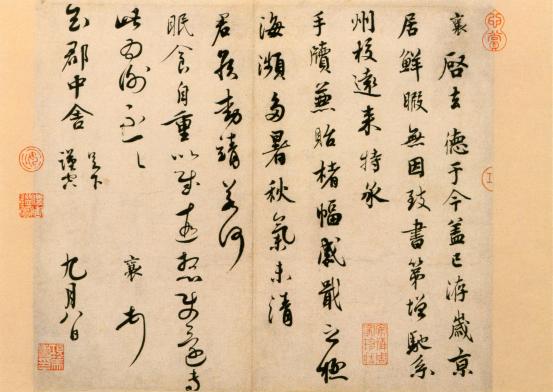 襄啓去德于今蓋已洊歲京
居鮮暇無因致書第增馳系
州校遠來特承
手牘兼貽楮幅感戢之極
海瀕多暑秋氣未清
君侯動靜若何
眠食自重以
此為謝不一一 襄 頓首
知郡中舍 足下 謹空 九月八日